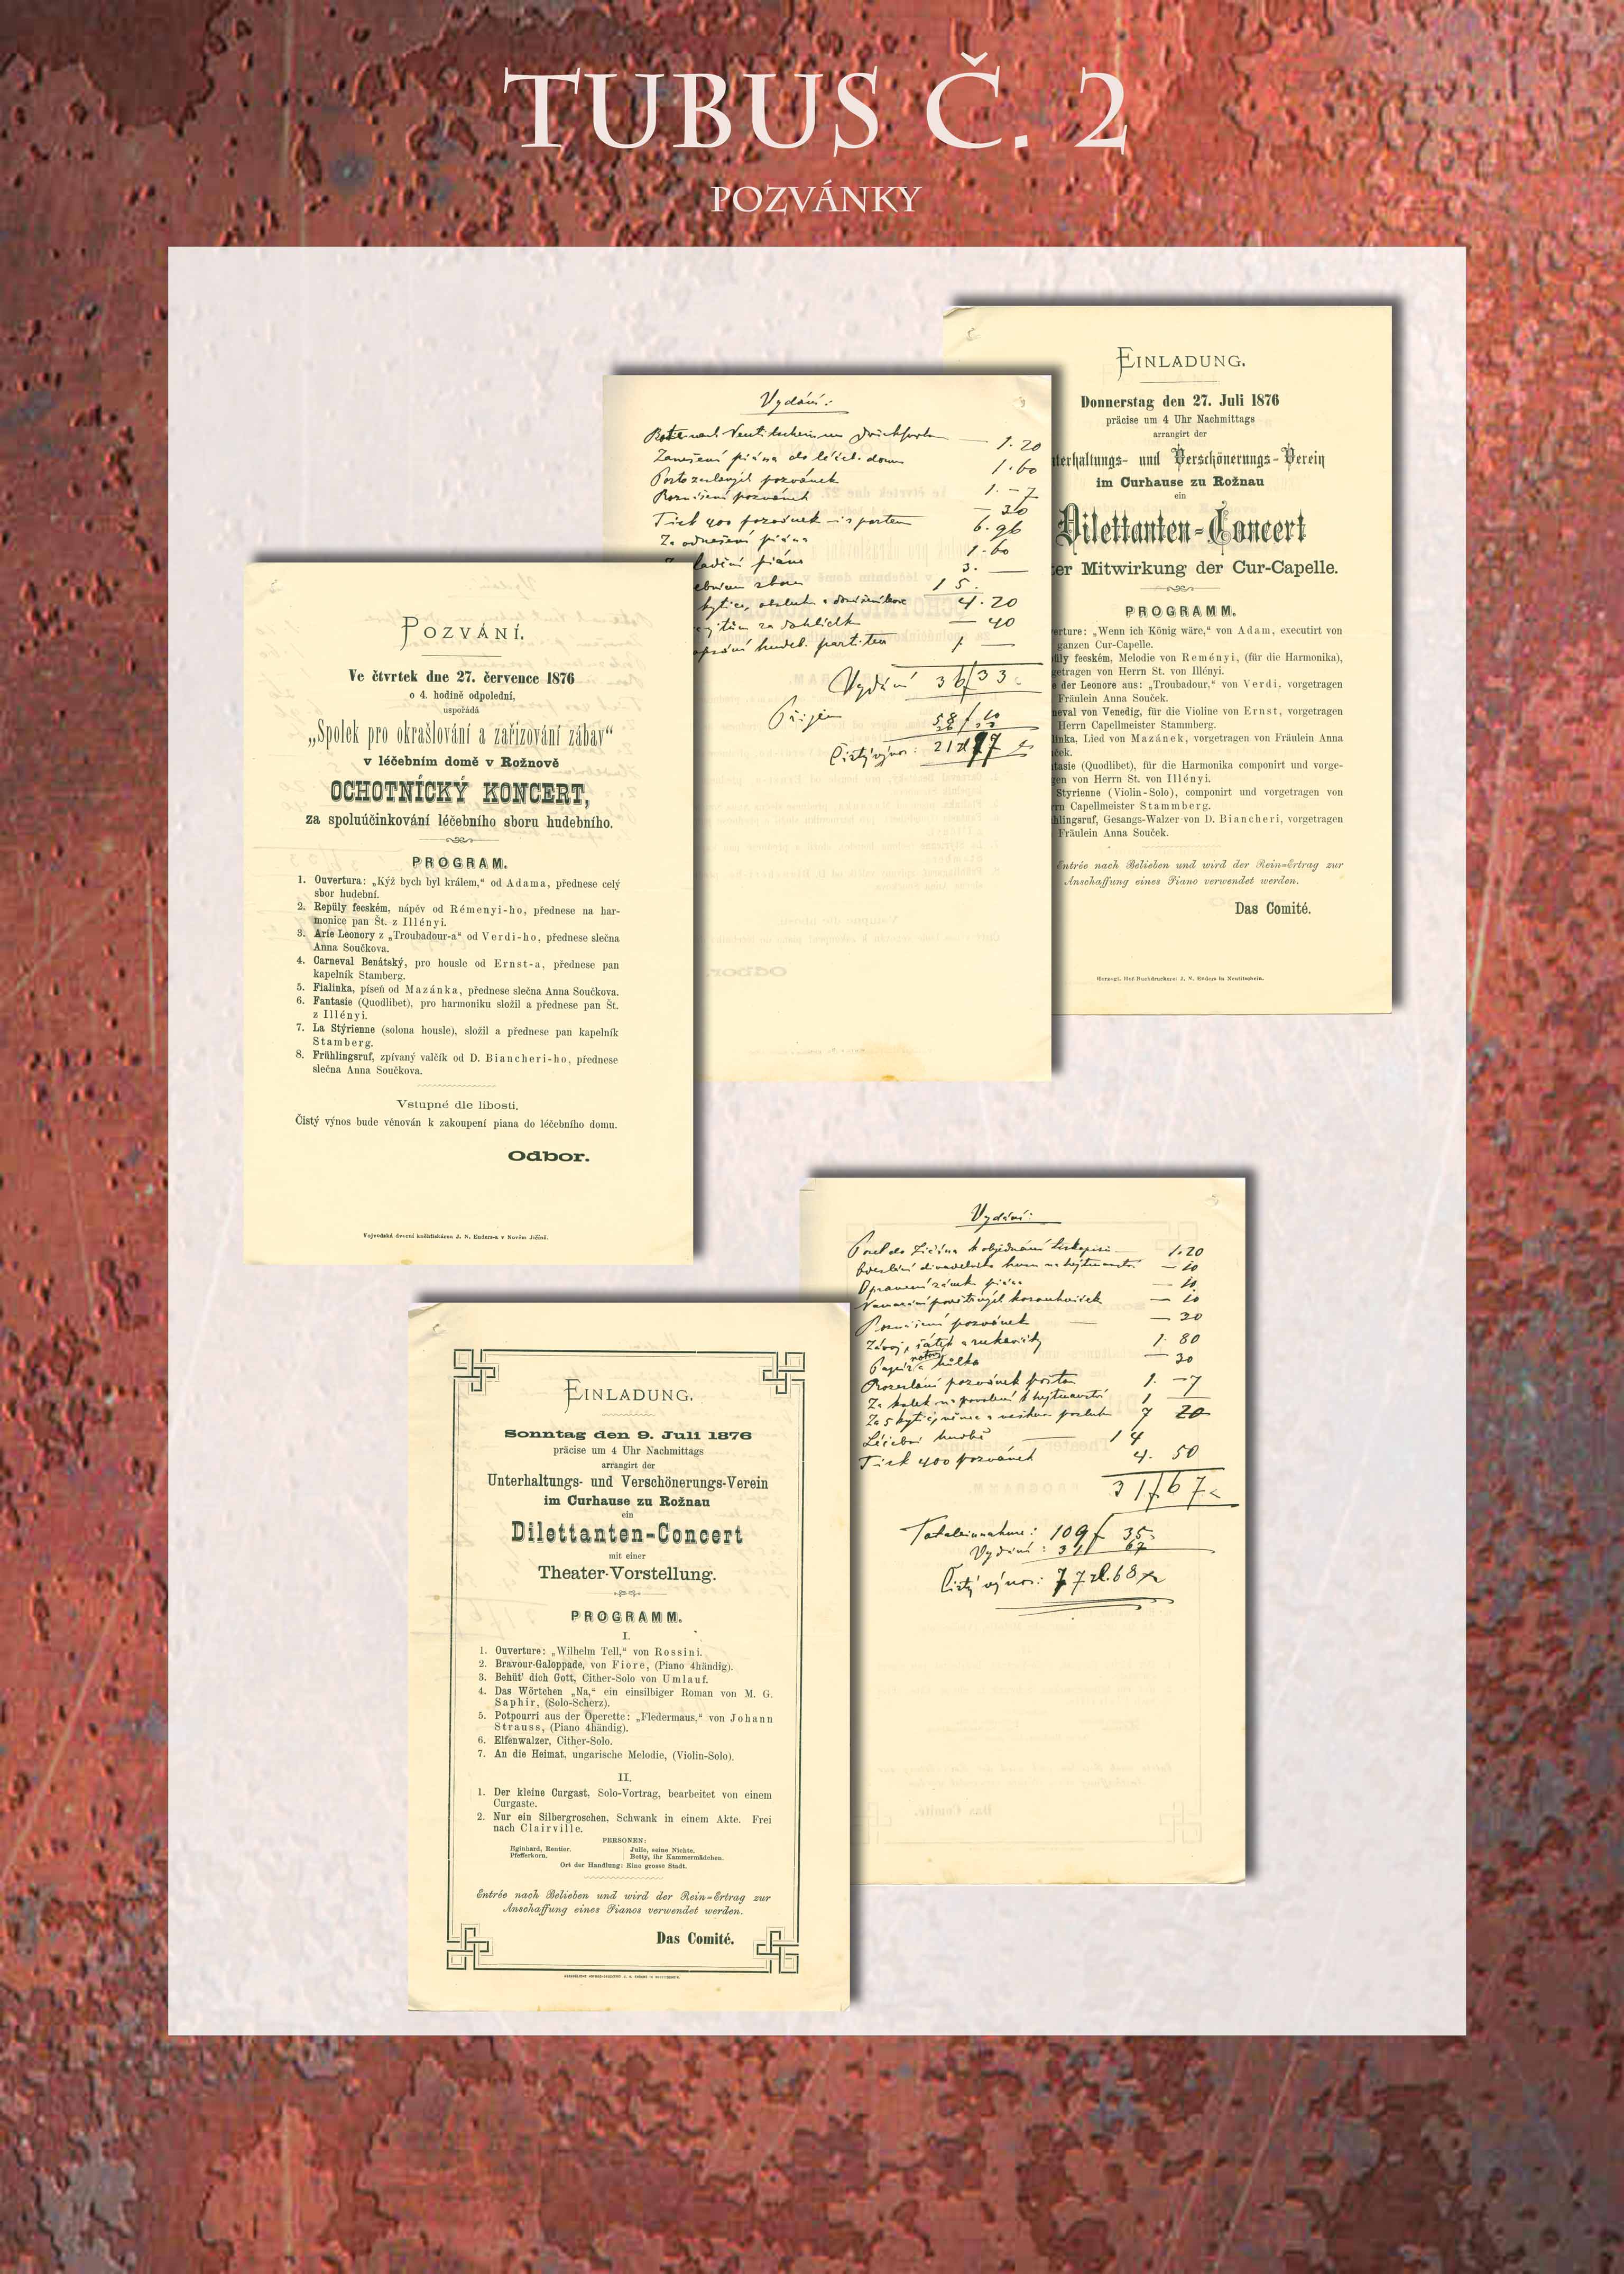 TUBUS Č. 2
POZVÁNKY
EINLADUNG.
Donnerstag den 27. Juli 1876
präcise um 4 Uhr Nachmittags
arrangirt der
terhaltungs- und Verschönerungs-Verein
im Curhause zu Rožnau
ein
Dilettanten-Concert
er Mitwirkung der Cur-Capelle.
PROGRAMM.
erture: „Wenn ich König wäre,“ von Adam, executirt von
ganzen Cur-Capelle.
üly fecském, Melodie von Reményi, (für die Harmonika),
getragen von Herrn St. von Illényi.
e der Leonore aus: „Troubadour,“ von Verdi, vorgetragen
Fräulein Anna Souček.
neval von Venedig, für die Violine von Ernst, vorgetragen
Herrn Capellmeister Stammberg.
linka, Lied von Mazánek, vorgetragen von Fräulein Anna
ček.
tasie (Quodlibet), für die Harmonika componirt und vorge-
gen von Herrn St. von Illényi.
Styrienne (Violin-Solo), componirt und vorgetragen von
rn Capellmeister Stammberg.
hlingsruf, Gesangs-Walzer von D. Biancheri, vorgetragen
Fräulein Anna Souček.
Entrée nach Belieben und wird der Rein-Ertrag zur
Anschaffung eines Piano verwendet werden.
Das Comité.
Herzogl. Hof-Buchdruckerei J. N. Enders in Neutitschein.
Vydání:
1·20
Zanešení piána do léčeb. domu 1·60
Porto zaslaných pozvánek 1·–7
Roznášení pozvánek –30
Tisk 400 pozvánek i s portem 6·96
Za odnešení piána 1·60
ladění piána 3·—
ebnímu sboru 15·
kytice, obsluh 4·20
40
1 —
Vydání 36f 33
Příjem 58f 10
Čistý výnos: 21zl 77
POZVÁNÍ.
Ve čtvrtek dne 27. července 1876
o 4. hodině odpolední,
uspořádá
„Spolek pro okrašlování a zařizování zábav“
v léčebním domě v Rožnově
OCHOTNÍCKÝ KONCERT,
za spoluúčinkování léčebního sboru hudebního.
PROGRAM.
1. Ouvertura: „Kýž bych byl králem,“ od Adama, přednese celý
sbor hudební.
2. Repüly fecském, nápěv od Rémenyi-ho, přednese na har-
monice pan Št. z Illényi.
3. Arie Leonory z „Troubadour-a“ od Verdi-ho, přednese slečna
Anna Součkova.
4. Carneval Benátský, pro housle od Ernst-a, přednese pan
kapelník Stamberg.
5. Fialinka, píseň od Mazánka, přednese slečna Anna Součkova.
6. Fantasie (Quodlibet), pro harmoniku složil a přednese pan Št.
z Illényi.
7. La Stýrienne (solona housle), složil a přednese pan kapelník
Stamberg.
8. Frühlingsruf, zpívaný valčík od D. Biancheri-ho, přednese
slečna Anna Součkova.
Vstupné dle libosti.
Čistý výnos bude věnován k zakoupení piana do léčebního domu.
Odbor.
Vojvodská dvorní knihtiskárna J. N. Enders-a v Novém Jičíně.
Vydání:
Posel do Jičína k objednání 1·20
— 10
Opravení zámku piána — 10
— 10
Roznášení pozvánek — 20
Závoj, šátek a rukavičky 1· 80
Papír notový a hůlka — 30
Rozeslání pozvánek poštou 1· –7
Za kolek na povolení k hejtmanství 1 —
Za 5 kytic, věnec a 7 20
Léčební hudbě 14
Tisk 400 pozvánek 4· 50
31f 67
Totaleinnahme: 109f 35
Vydání: 31 67
Čistý výnos: 77 zl. 68
EINLADUNG.
Sonntag den 9. Juli 1876
präcise um 4 Uhr Nachmittags
arrangirt der
Unterhaltungs- und Verschönerungs-Verein
im Curhause zu Rožnau
ein
Dilettanten-Concert
mit einer
Theater-Vorstellung.
PROGRAMM.
I.
1. Ouverture: „Wilhelm Tell,“ von Rossini.
2. Bravour-Galoppade, von Fiore, (Piano 4händig).
3. Behüt' dich Gott, Cither-Solo von Umlauf.
4. Das Wörtchen „Na,“ ein einsilbiger Roman von M. G.
Saphir, (Solo-Scherz).
5. Potpourri aus der Operette: „Fledermaus,“ von Johann
Strauss, (Piano 4händig).
6. Elfenwalzer, Cither-Solo.
7. An die Heimat, ungarische Melodie, (Violin-Solo).
II.
1. Der kleine Curgast, Solo-Vortrag, bearbeitet von einem
Curgaste.
2. Nur ein Silbergroschen, Schwank in einem Akte. Frei
nach Clairville.
PERSONEN:
Eginhard, Rentier. Julie, seine Nichte.
Pfefferkorn. Betty, ihr Kammermädchen.
Ort der Handlung: Eine grosse Stadt.
Entrée nach Belieben und wird der Rein-Ertrag zur
Anschaffung eines Pianos verwendet werden.
Das Comité.